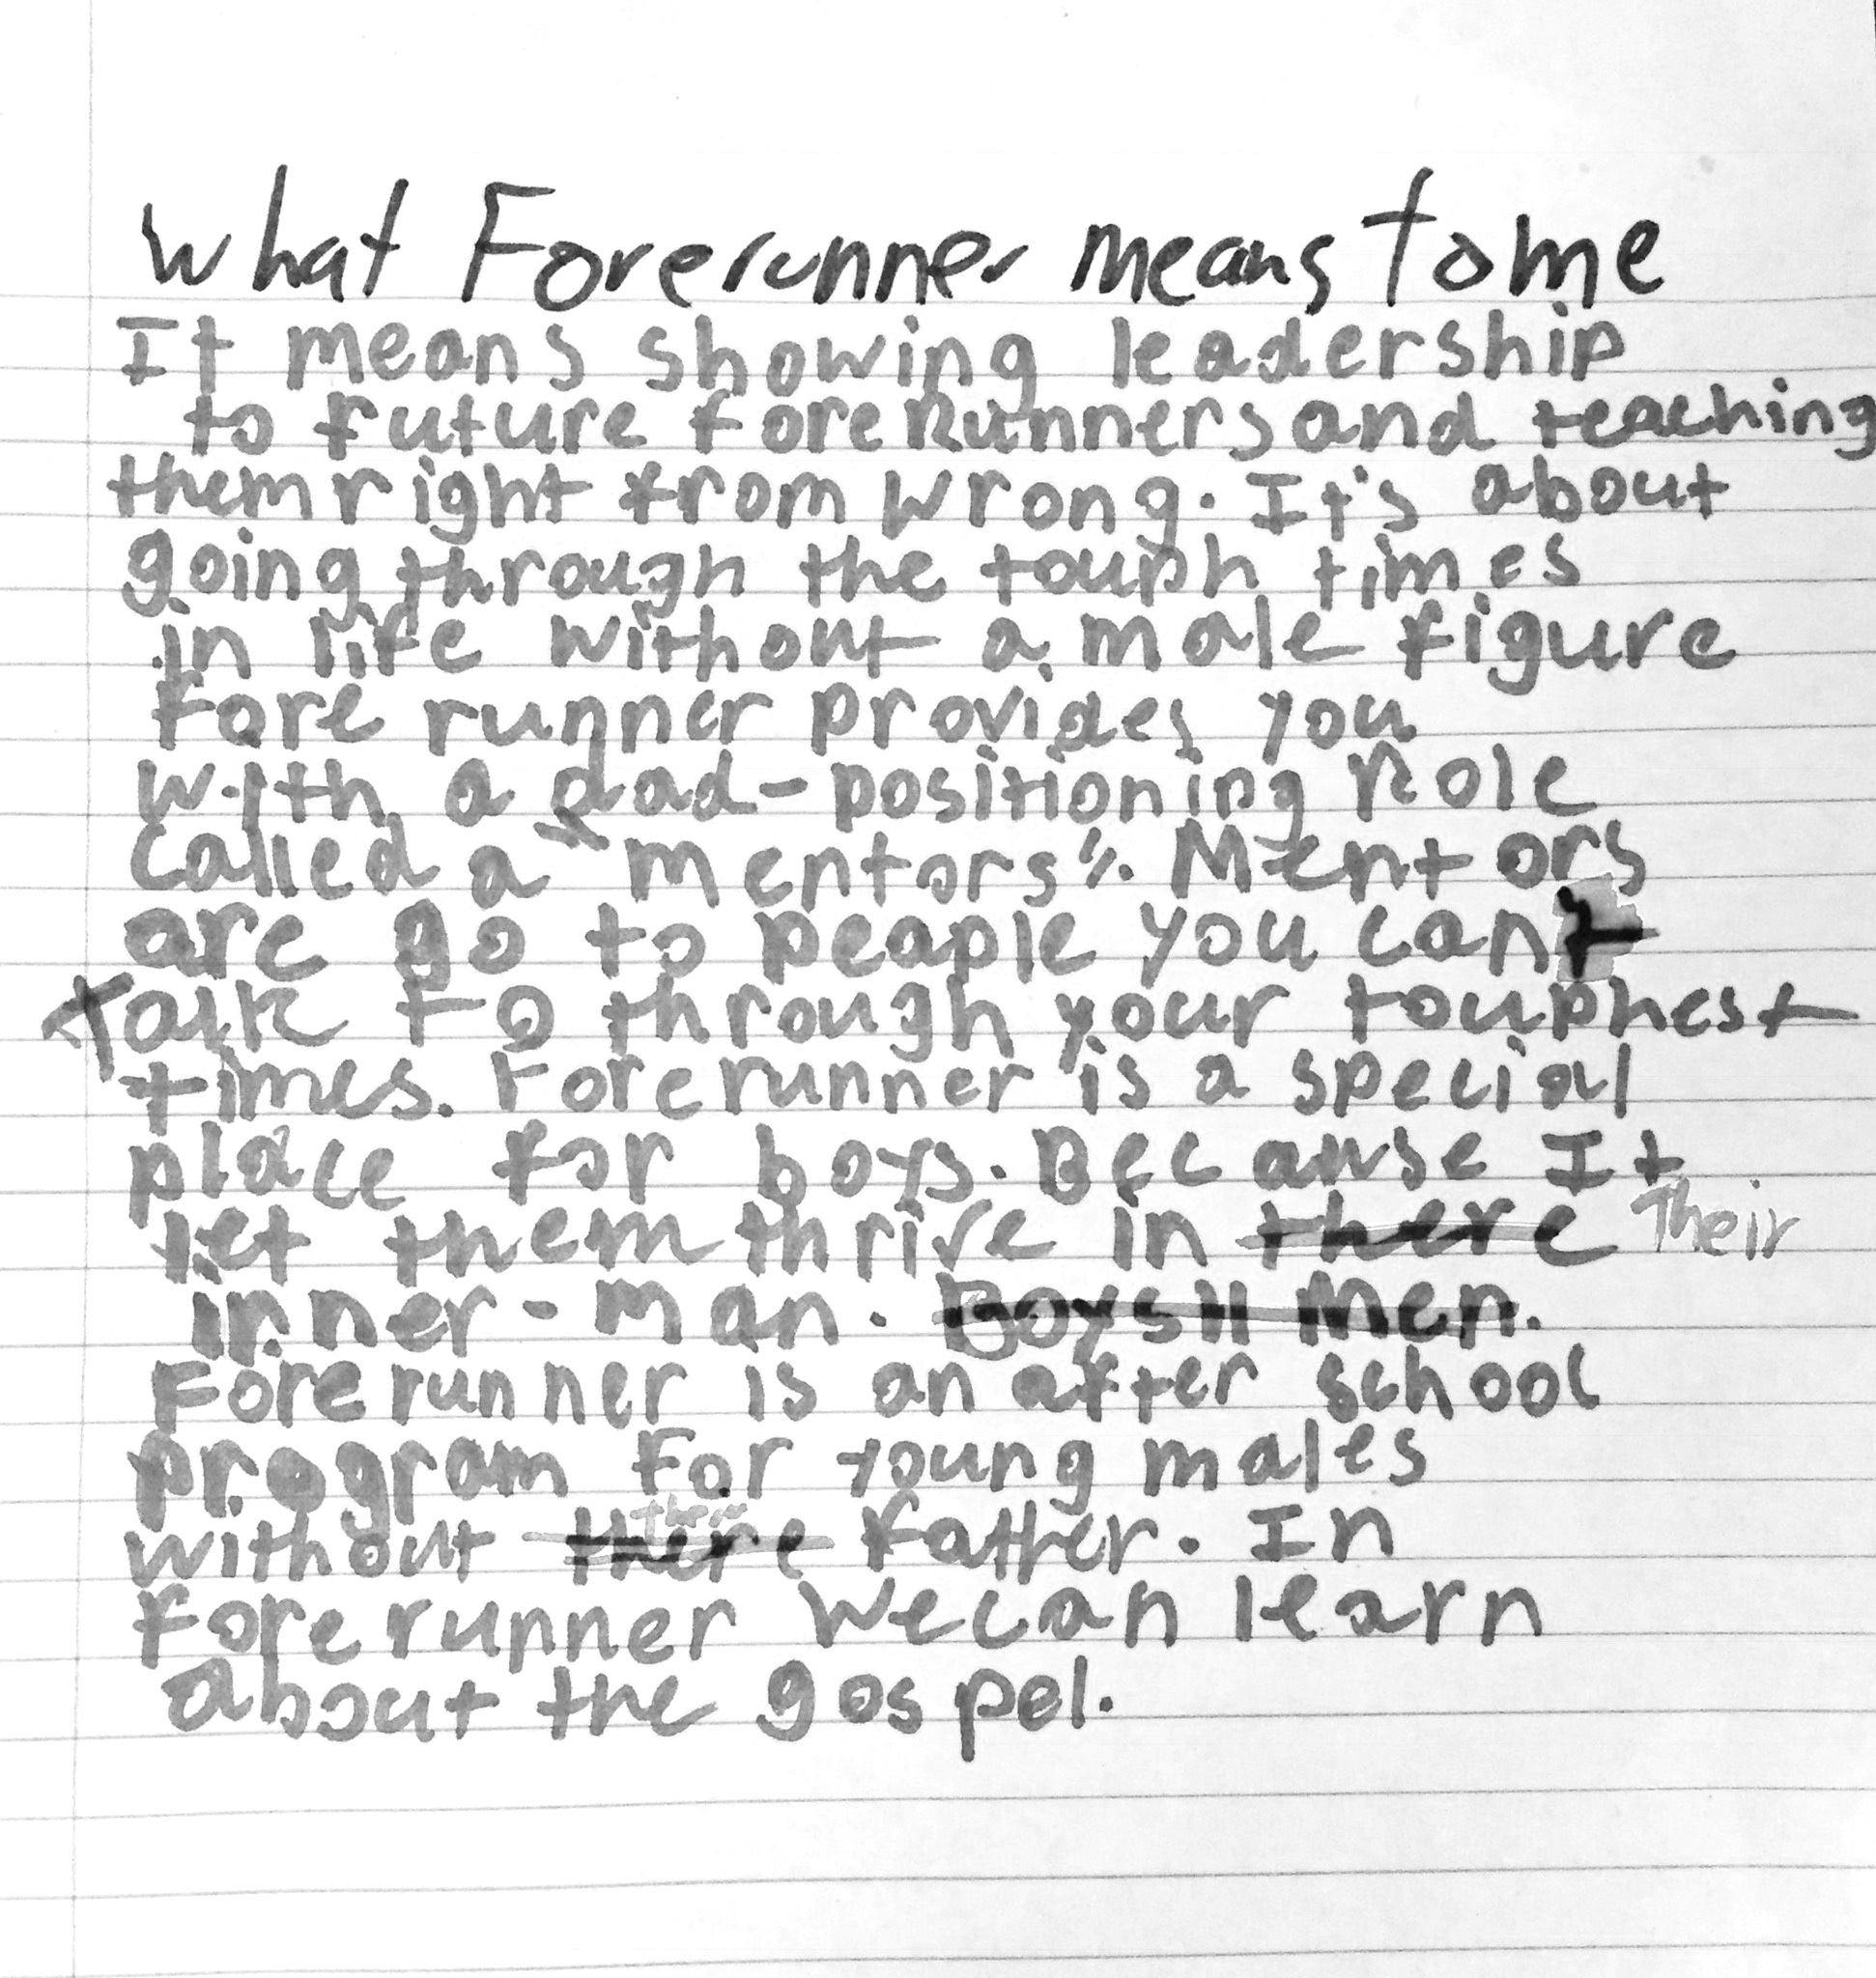 What Forerunner means to me
It means showing leadership
to future foreRunners and teaching
them right from wrong. It's about
going through the tough times
in life without a male figure
Forerunner provides you
with a dad-positioning Role
called a "mentors". Mentors
are go to peaple you can
Talk to through your toughest
times. Forerunner is a special
place for boys. Because It
let them thrive in there Their
inner-man. Boys II Men.
Forerunner is an after school
program For young males
without there father. In
Forerunner We can learn
about the gospel.